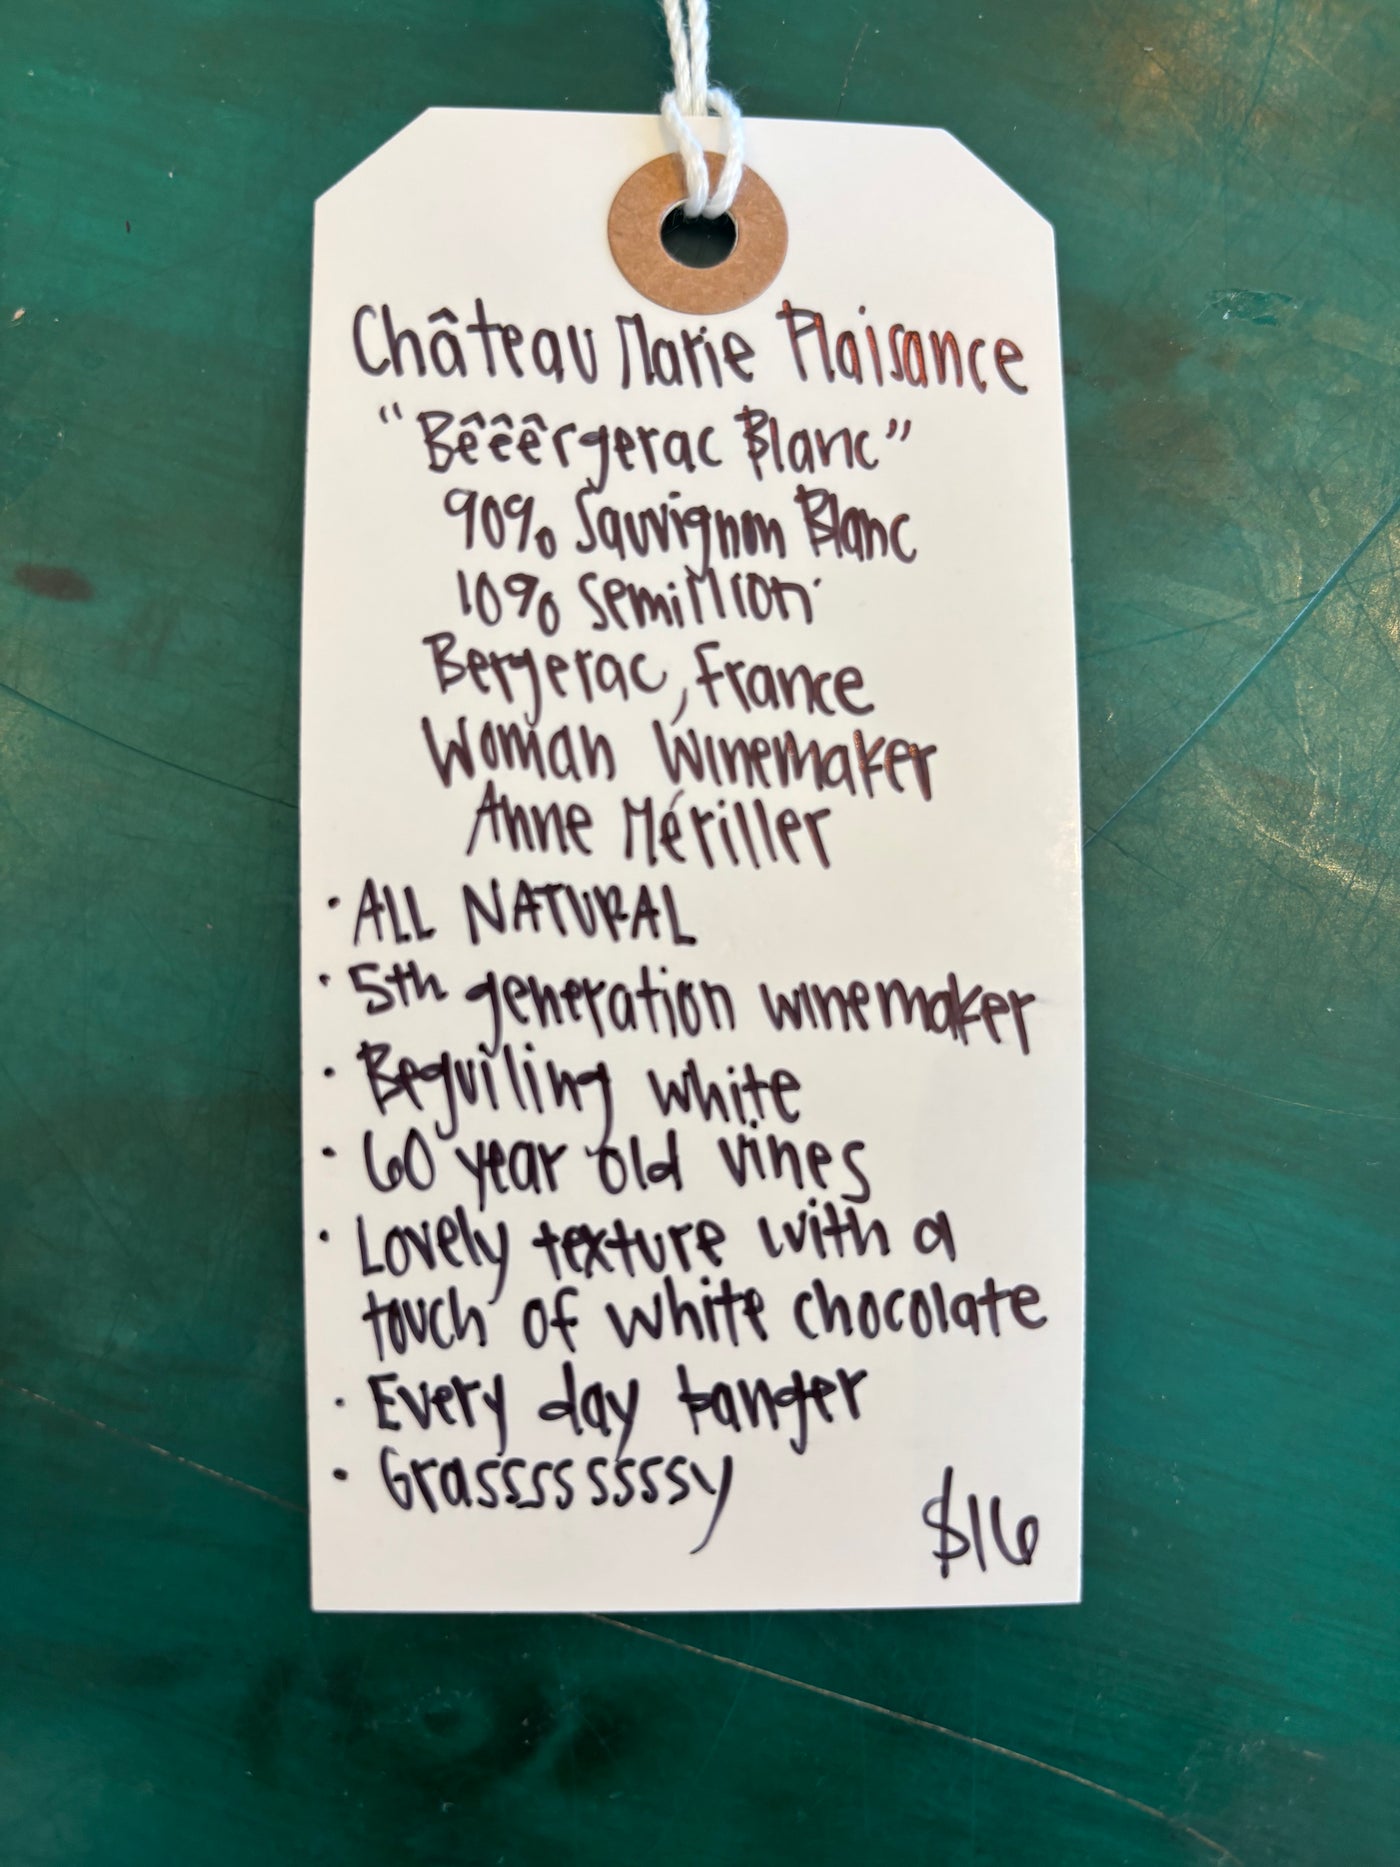 Château Marie Plaisance
"Bêêêrgerac Blanc"
90% Sauvignon Blanc
10% Semillion
Bergerac, France
Woman Winemaker
Anne Mériller
· ALL NATURAL
· 5th generation winemaker
· Beguiling white
· 60 year old vines
· Lovely texture with a
touch of white chocolate
· Every day banger
· Grasssssssssy
$16